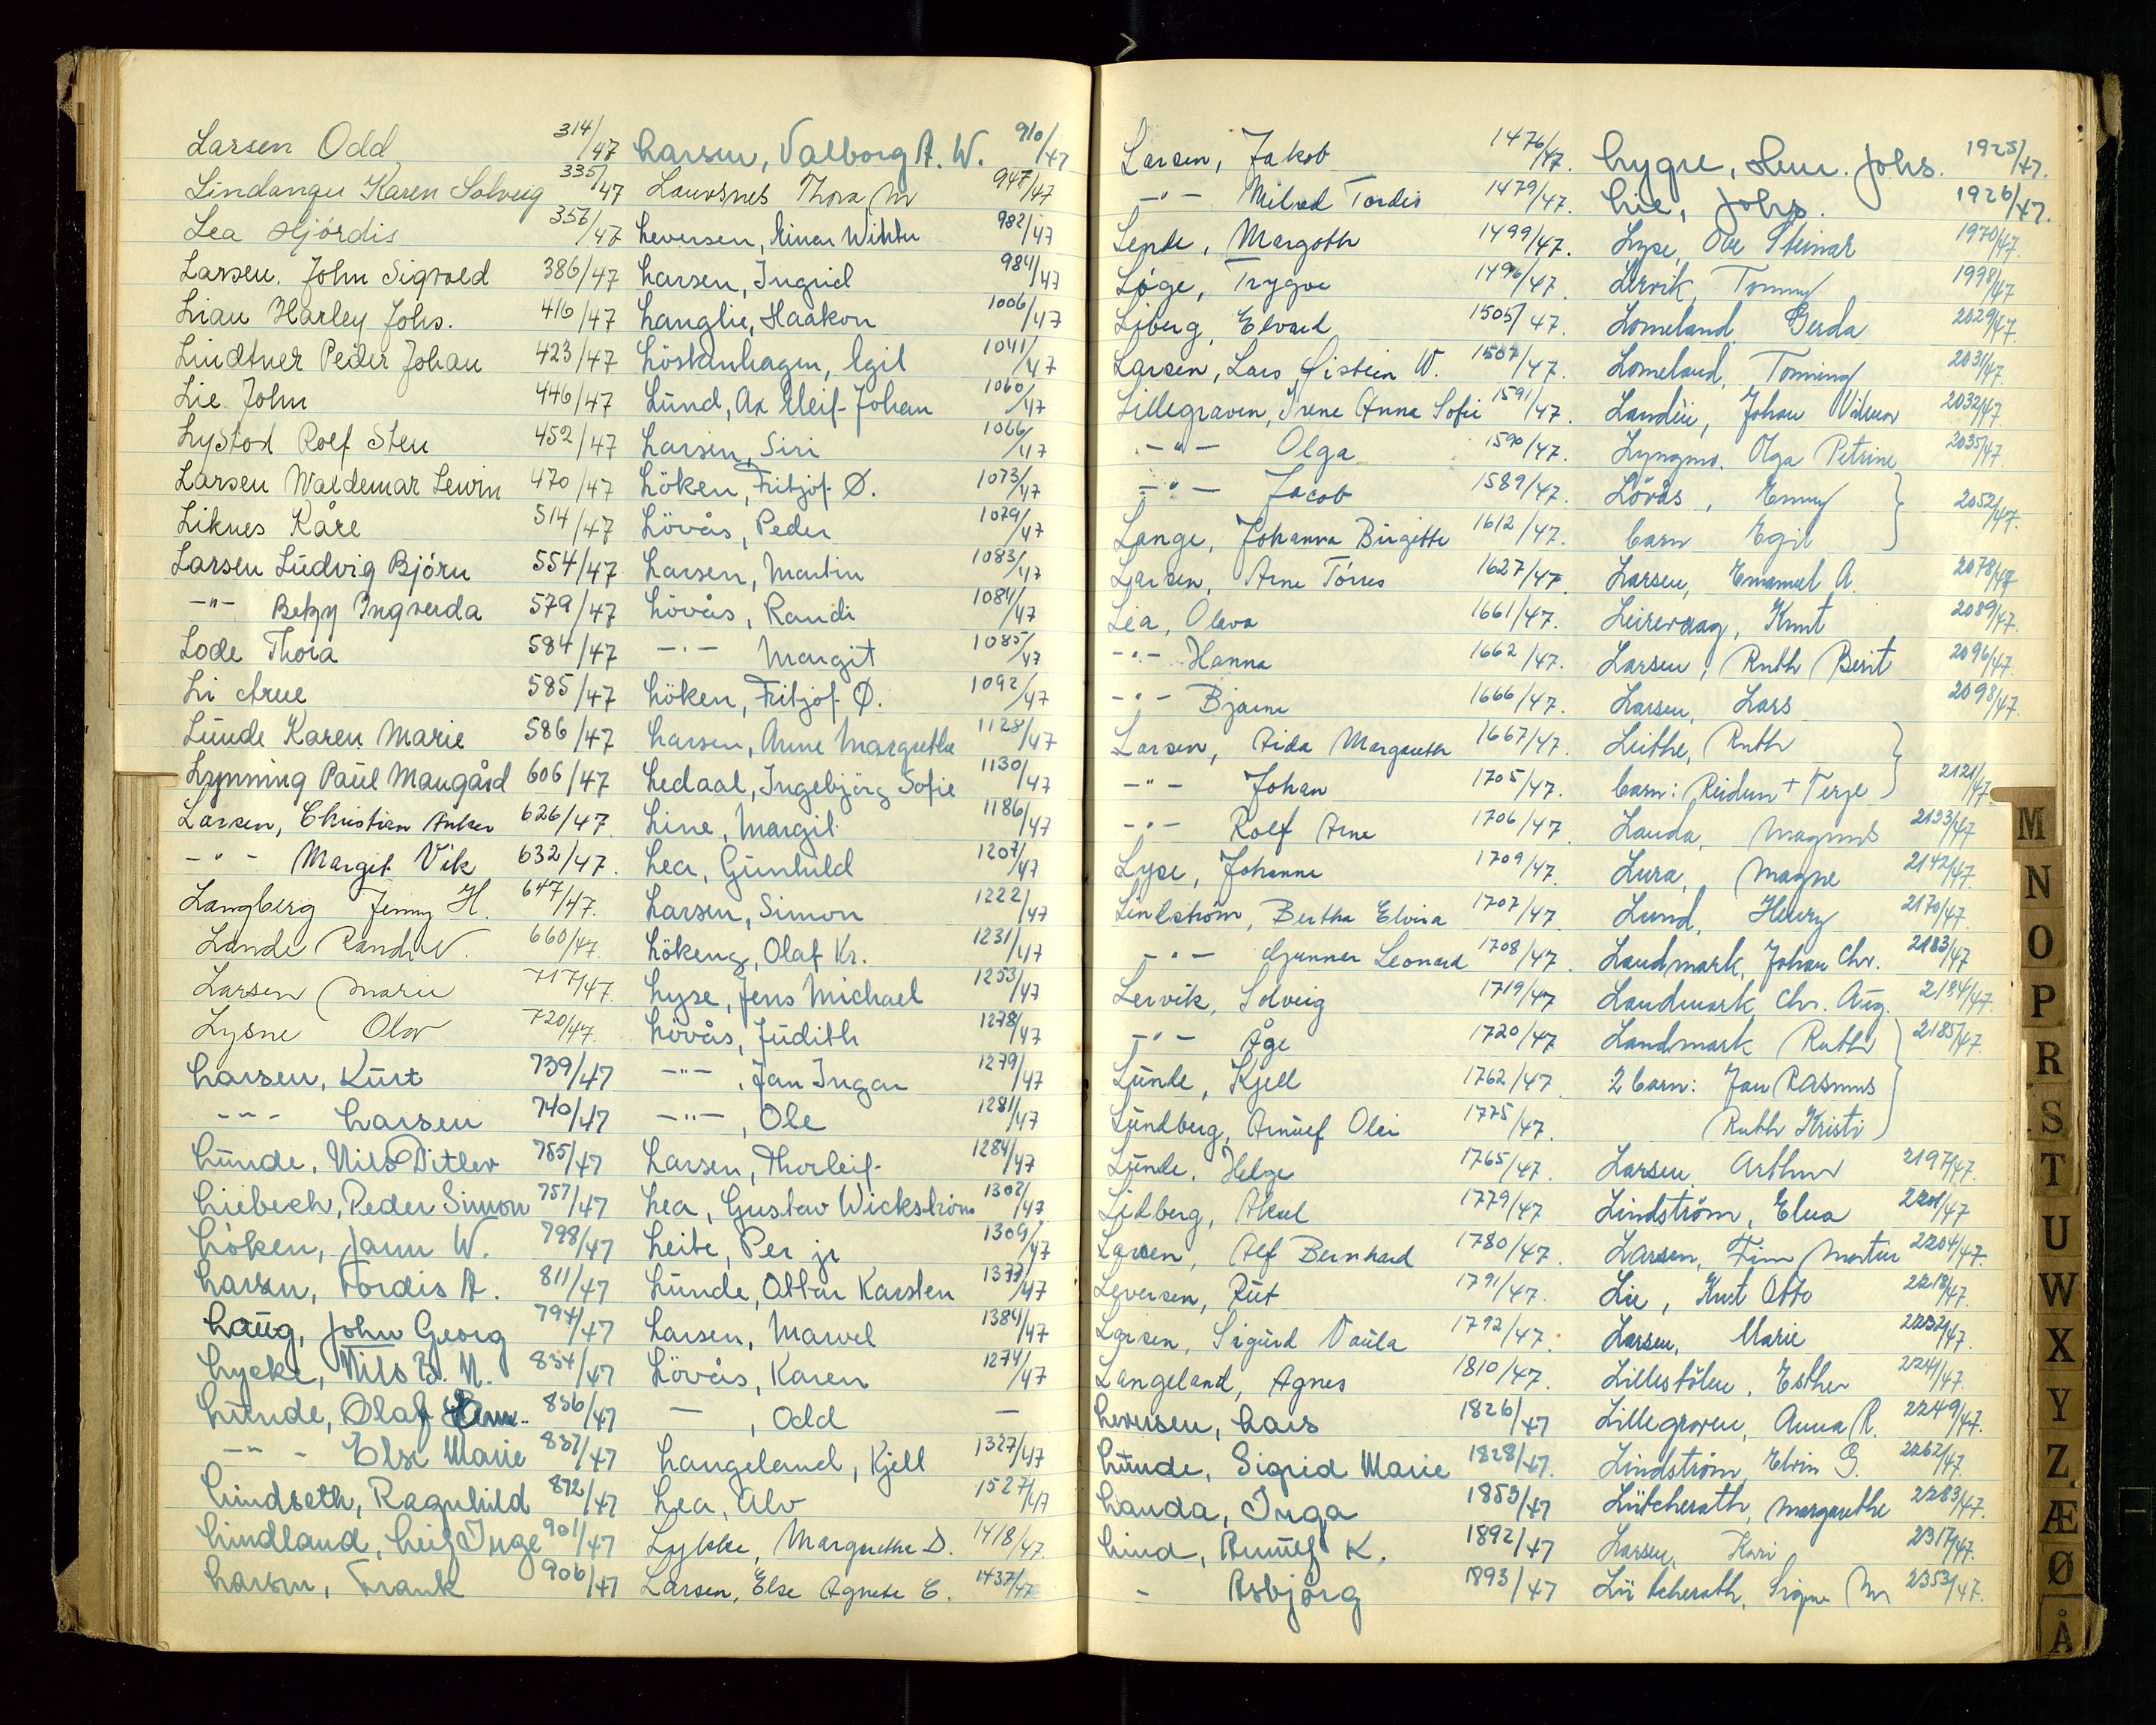 Larsen Odd 314/47
Lindanger Karen Solveig 335/47
Lea Hjördis 356/47
Larsen. John Sigvald 386/47
Liau Harley Johs. 416/47
Lindtner Peder Johan 423/47
Lie John 446/47
Lystad Rolf Sten 452/47
Larsen Waldemar Lewin 470/47
Liknes Kåre 514/47
Larsen Ludvig Björn 554/47
-"- Betzy Ingverda 579/47
Lode Thora 584/47
Li Arne 585/47
Lunde Karen Marie 586/47
Lynning Paul Maugård 606/47
Larsen, Christian Anker 626/47
-"- Margit Vik 632/47.
Langberg Jenny H. 647/47.
Lande Randi V. 660/47.
Larsen Marie 717/47.
Lysne Olav 720/47.
Larsen, Kurt 739/47
-"- Larsen 740/47
Lunde, Nils Ditlev 755/47
Liebech, Peder Simon 757/47
Löken, Jann W. 798/47
Larsen, Tordis A. 811/47
Laug, John Georg 794/47
Lycke, Nils B. N. 834/47
Lunde, Olaf 836/47
-"- Else Marie 837/47
Lindseth, Ragnhild 872/47
Lindland, Leif Inge 901/47
Larsen, Frank 906/47
Larsen, Valborg A. W. 910/47
Laursnes Thora M 947/47
Leversen, Einar 982/47
Larsen, Ingrid 984/47
Langlie, Haakon 1006/47
Löstenhagen, Egil 1041/47
Lund, Ax Eleif Johan 1060/47
Larsen, Siri 1066/47
Löken, Fritjof Ø. 1073/47
Lövås, Peder 1079/47
Larsen, Martin 1083/47
Lövås, Randi 1084/47
-"- Margit 1085/47
Löken, Fritjof Ø. 1092/47
Larsen, Anne Margrethe 1128/47
Ledaal, Ingebjörg Sofie 1130/47
Line, Margit 1186/47
Lea, Gunhild 1207/47
Larsen, Simon 1222/47
Lökeng, Olaf Kr. 1231/47
Lyse, Jens Michael 1253/47
Lövås, Judith 1278/47
-"-, Jan Ingar 1279/47
-"-, Ole 1281/47
Larsen, Thorleif 1284/47
Lea, Gustav Wickström 1302/47
Leite, Per jr 1309/47
Lunde, Ottar Karsten 1377/47
Larsen, Marvel 1384/47
Lövås, Karen 1274/47
-, Odd -
Langeland, Kjell 1327/47
Lea, Alv 1527/47
Lykke, Margrethe D. 1418/47.
Larsen, Else Agnete E. 1437/47
Larsen, Jakob 1476/47.
-"- Milrad Tordis 1479/47.
Lende, Margoth 1499/47.
Løge, Trygve 1496/47
Liberg, Edvard 1505/47.
Larsen, Lars Øistein W. 1507/47.
Lillegraven, Irene Anna Sofie 1591/47.
-"- Olga 1590/47.
-"- Jacob 1589/47.
Lange, Johanna Birgitte 1612/47.
Larsen, Arne Torres 1627/47.
Lea, Olava 1661/47.
-"- Hanna 1662/47.
-"- Bjarne 1666/47.
Larsen, Aida Margareth 1667/47.
-"- Johan 1705/47.
-"- Rolf Arne 1706/47.
Lyse, Johanne 1709/47.
Lindström, Bertha Elvira 1707/47.
-"- Gunnar Leonard 1708/47.
Lervik, Solveig 1719/47
-"- Åge 1720/47
Lunde, Kjell 1762/47
Lundberg, Arnulf Olei 1775/47.
Lunde, Helge 1765/47.
Lidberg, Aksel 1779/47
Larsen, Alf Bernhard 1780/47.
Leversen, Rut 1791/47.
Larsen, Sigurd Vaula 1792/47.
Langeland, Agnes 1810/47.
Leversen, Lars 1826/47
Lunde, Sigrid Marie 1828/47.
Landa, Inga 1853/47
Lind, Arnulf K. 1892/47
- Asbjörg 1893/47
Lygre, Herm. Johs. 1925/47.
Lie, Johs. 1926/47.
Lyse, Ove Steinar 1970/47.
Lervik, Tommy 1998/47
Lomeland, Gerda 2029/47.
Lomeland, Tonning 2031/47.
Landén, Johan Vilmar 2032/47.
Lyngmo, Olga Petrine 2035/47.
Lövås, Emmy
barn Egil 2052/47.
Larsen, Emanuel A. 2078/47
Leirevaag, Knut 2089/47.
Larsen, Ruth Berit 2096/47.
Larsen, Lars 2098/47.
Leithe, Ruth
barn: Reidun + Terje 2121/47.
Landa, Magnus 2133/47
Lura, Magne 2142/47.
Lund, Henry 2170/47.
Landmark, Johan Chr. 2183/47
Landmark, Chr. Aug. 2184/47.
Landmark Ruth 2185/47.
2 barn: Jan Rasmus
Ruth Kristi
Larsen, Arthur 2197/47.
Lindström, Elna 2201/47
Larsen, Finn Martin 2204/47.
Lie, Knut Otto 2218/47.
Larsen, Marie 2232/47.
Lillestölen, Esther 2241/47.
Lillegraven, Anna R. 2249/47.
Lindström, Elvin G. 2262/47.
Lütcherath, Margarethe 2283/47.
Larsen, Kari 2317/47.
Lütcherath, Signe M 2353/47.
M
N
O
P
R
S
T
U
W
X
Y
Z
Æ
Ø
Å